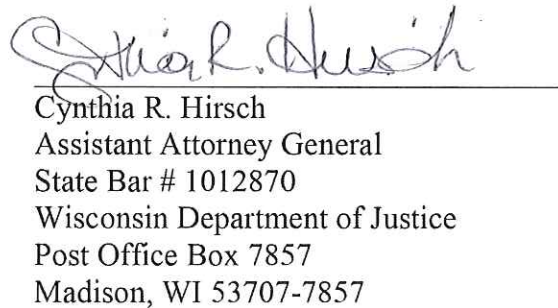 Cynthia R. Hirsch
Cynthia R. Hirsch
Assistant Attorney General
State Bar # 1012870
Wisconsin Department of Justice
Post Office Box 7857
Madison, WI 53707-7857